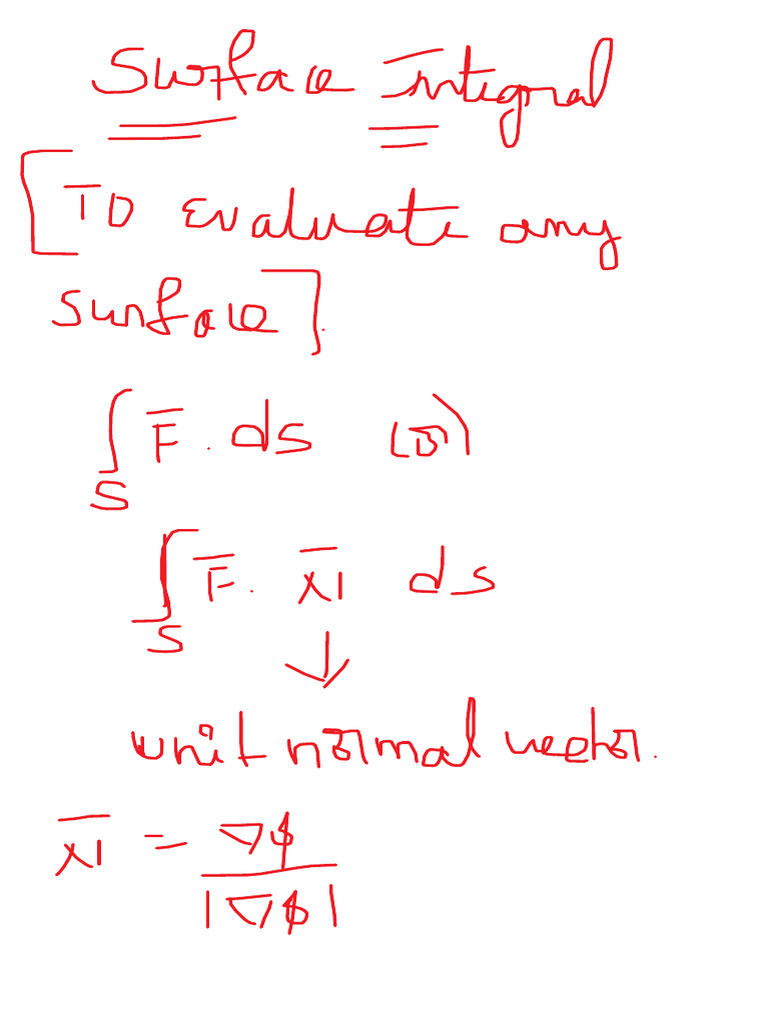 Surface Integral
[To evaluate any
surface].
∫_S F̅ . ds (or)
∫_S F̅ . N̅ ds
↓
unit normal vector.
N̅ = ∇φ / |∇φ|